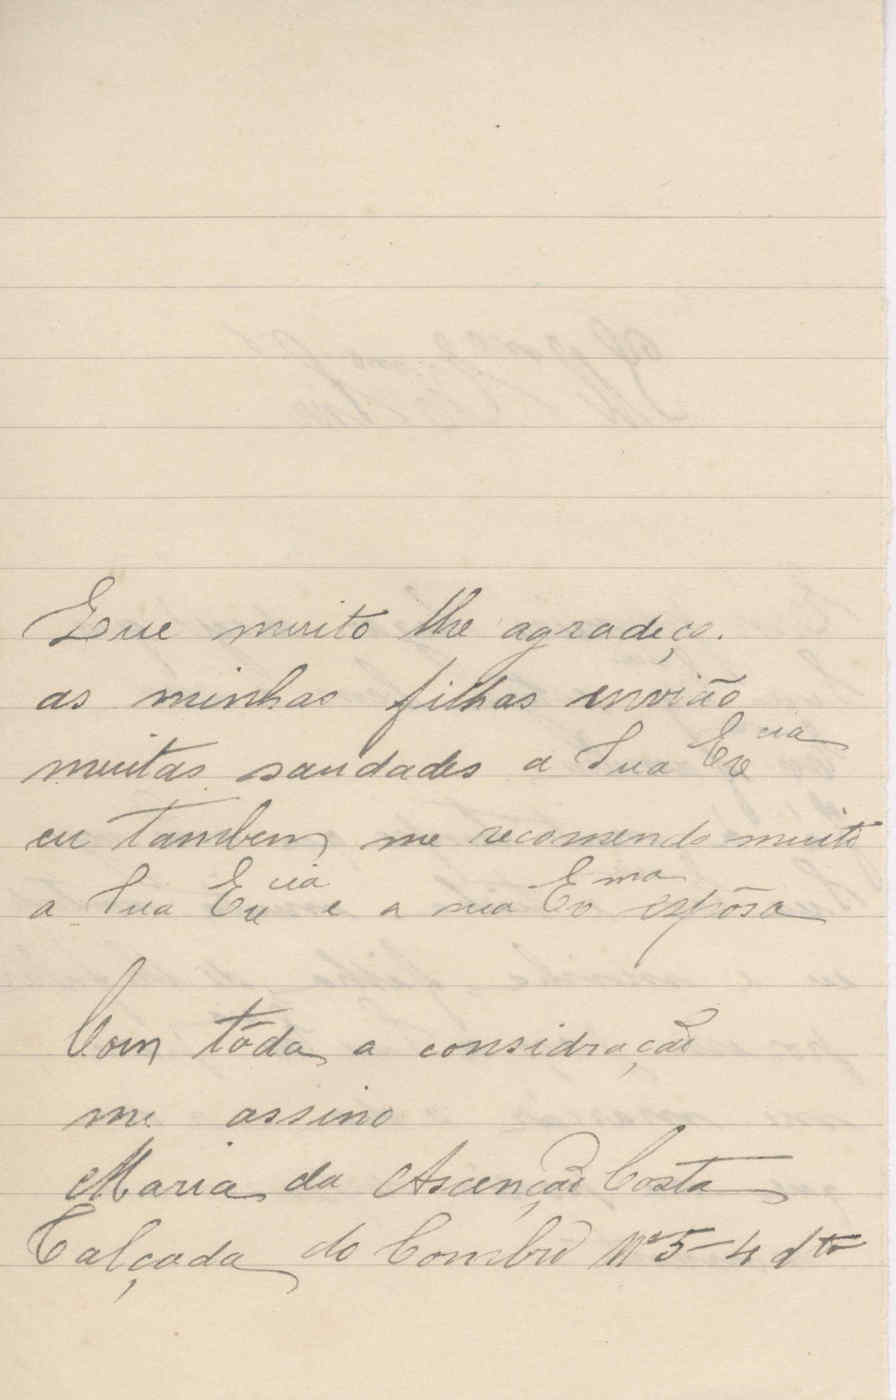 Que muito lhe agradeço.
as minhas filhas invião
muitas saudades a Sua Excia
eu tambem me recomendo muito
a Sua Excia e a sua Exma espôsa
Com tôda a considração
me assino
Maria da Ascenção Costa
Calçada do Combro Nº 5-4 dto